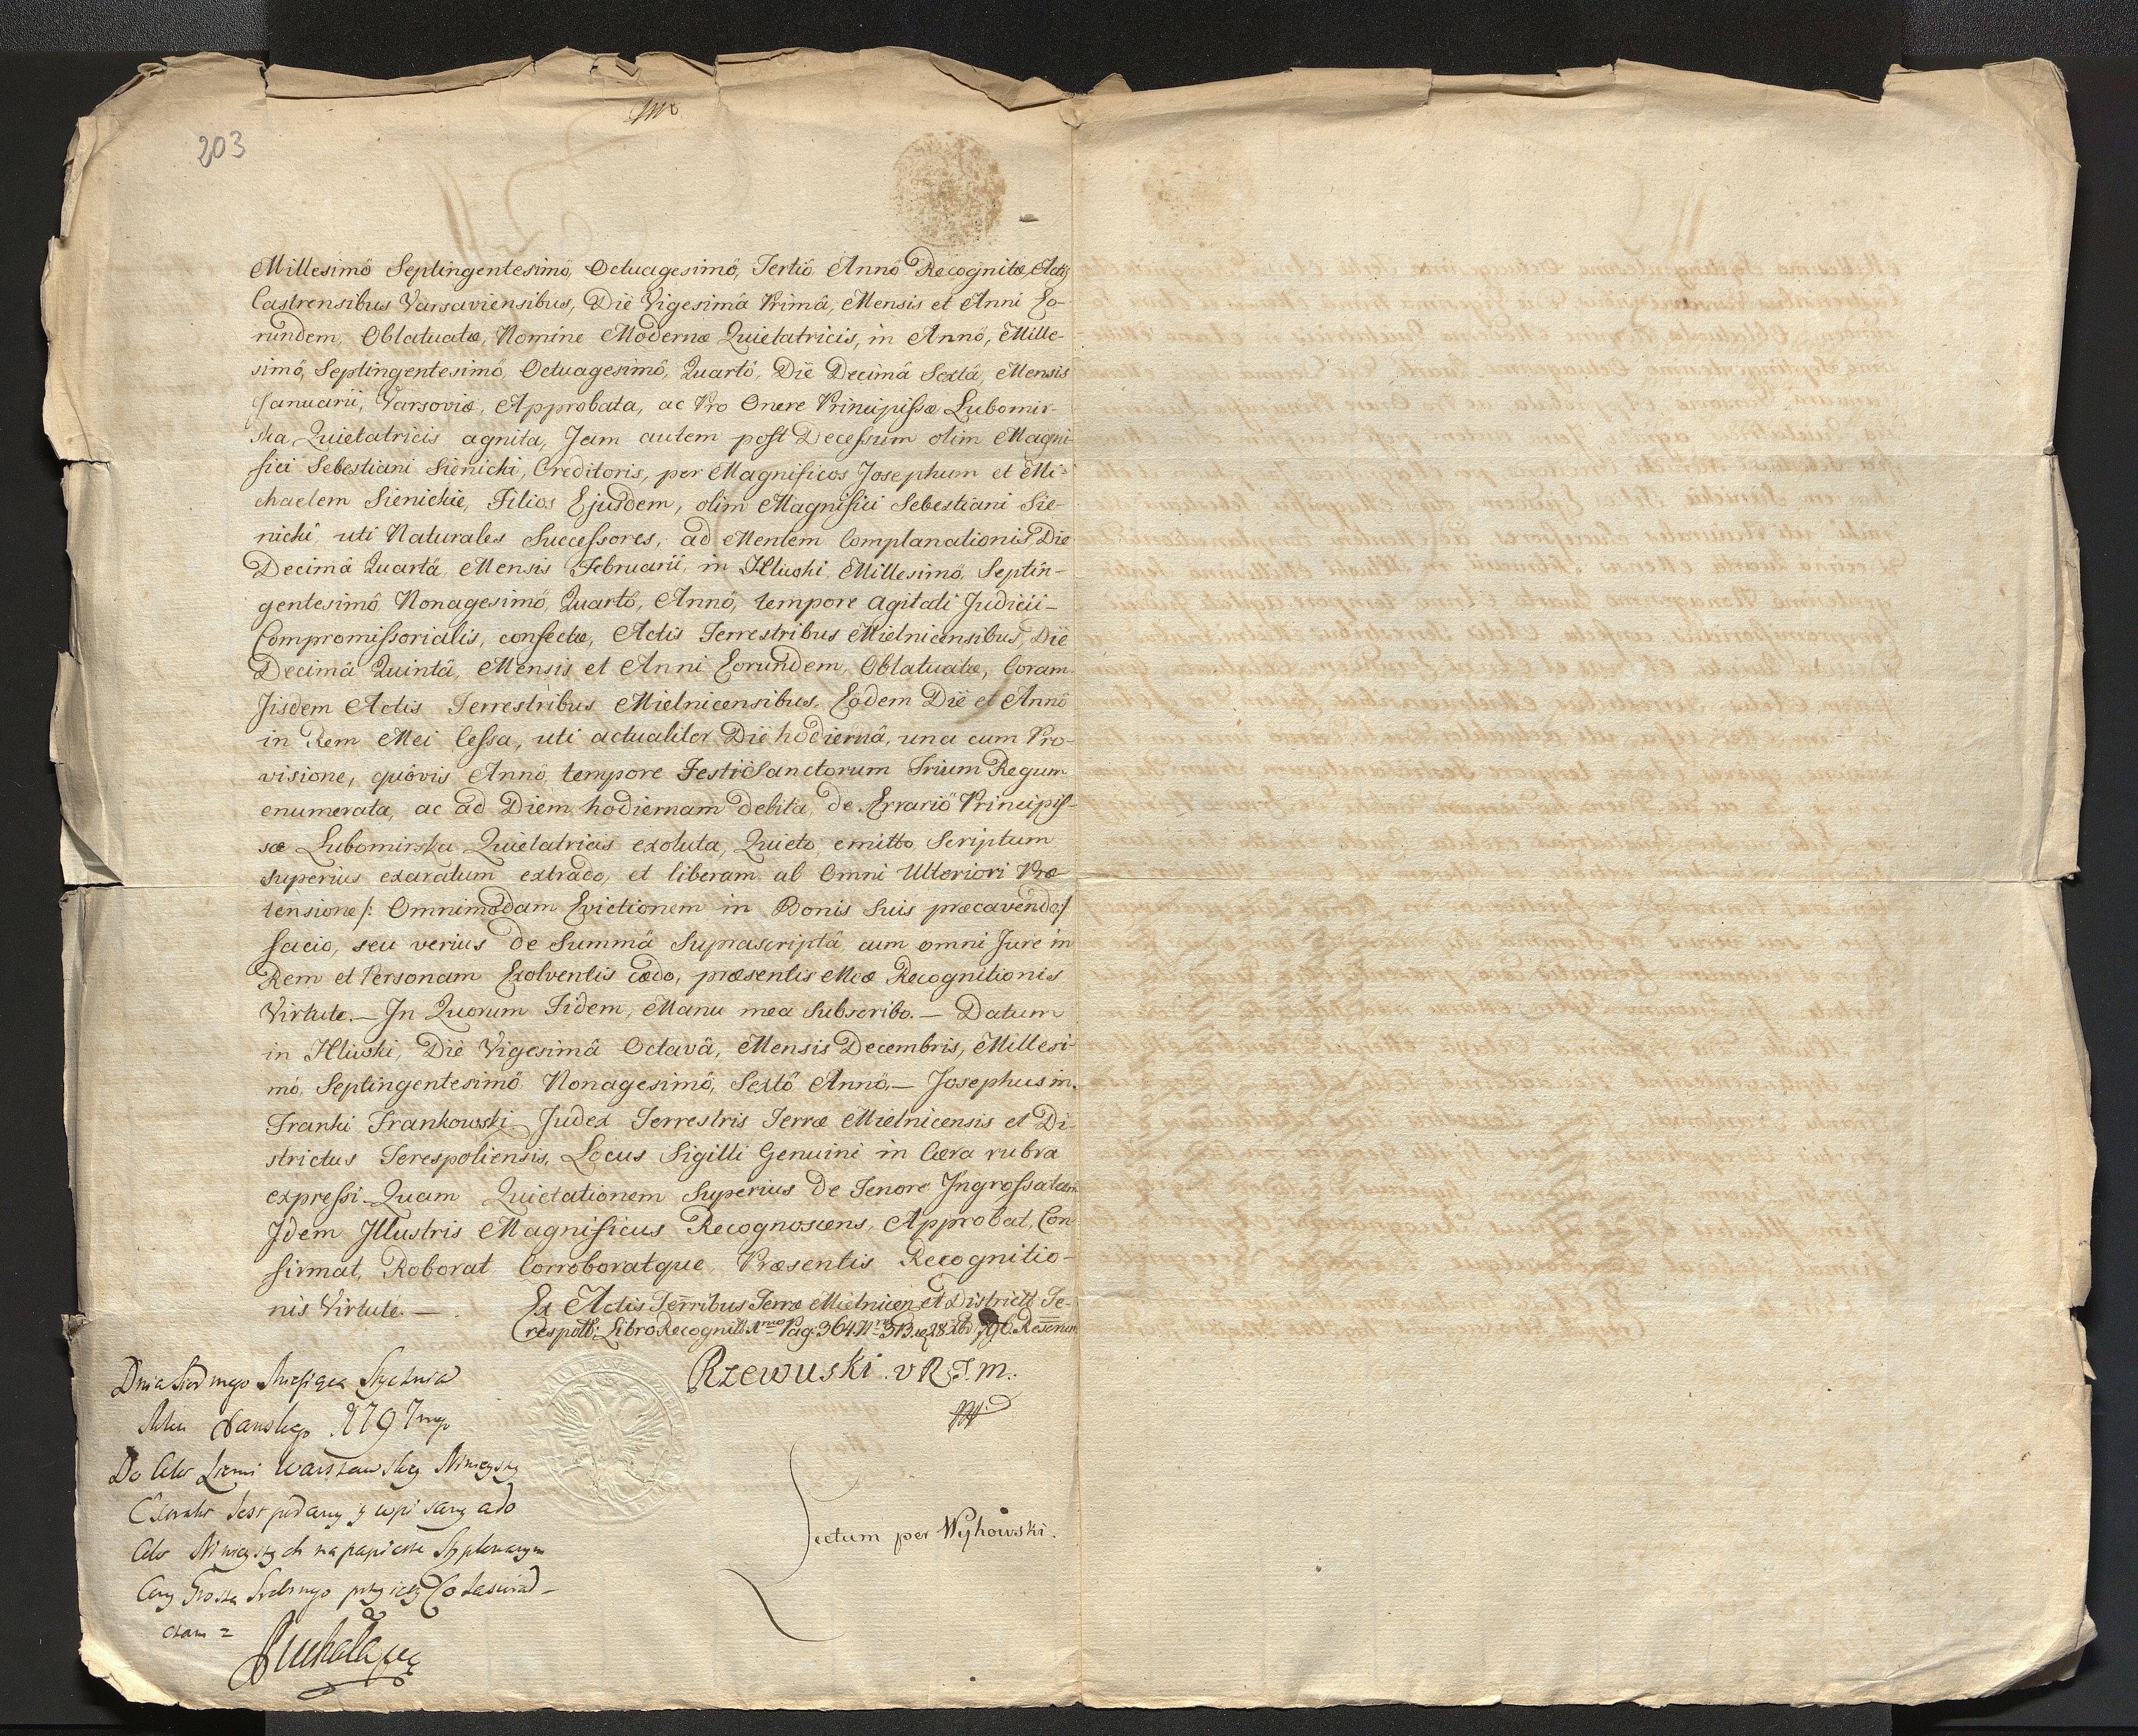 203
Millesimô Septingentesimô, Octuagesimô, Tertiô Annô Recognitæ, Actis
Castrensibus Varsaviensibus, Diê Vigesimâ Primâ, Mensis et Anni Eo-
rundem, Oblatuatæ, Nomine Modernæ Quietatricis, in Annô, Mille-
simô, Septingentesimô, Octuagesimô, Quartô, Diê Decimâ Sextâ, Mensis
Januarii, Varsoviæ, Approbata, ac Pro Onere Principissæ Lubomir-
ska Quietatricis agnita, Jam autem post Decessum olim Magni-
fici Sebestiani Sienicki, Creditoris, per Magnificos Josephum et Mi-
chaelem Sienickie, Filios Ejusdem, olim Magnifici Sebestiani Sie-
nicki, uti Naturales Successores, ad Mentem Complanationis Die
Decimâ Quartâ Mensis Februarii, in Hluski Millesimô, Septin-
gentesimô Nonagesimô, Quartô, Annô, tempore agitati Judicii-
Compromissorialis, confectæ, Actis Terrestribus Mielnicensibus, Diê
Decimâ Quintâ, Mensis et Anni Eorundem, Oblatuatæ, Coram
Jisdem Actis Terrestribus Mielnicensibus, Eôdem Diê et Annô
in Rem Mei Cessa, uti actualiter Diê hodiernâ, una cum Pro-
visione, quôvis Annô, tempore Festi Sanctorum Trium Regum
enumerata, ac ad Diem hodiernam debita, de Ærrariô Principis-
sæ Lubomirska Quietatricis exoluta, Quieto, emitto, Scriptum
superius exaratum extrado, et liberam ab Omni Ulteriori Præ-
tensione /: Omnimodam Evictionem in Bonis Suis præcavendo :/
facio, seu verius de Summâ Supra scriptâ, cum omni Jure in
Rem et Personam Exolventis cædo, præsentis Meæ Recognitionis
Virtute. — In Quorum Fidem, Manu mea Subscribo. — Datum
in Hluski, Diê Vigesimâ Octavâ, Mensis Decembris, Millesi-
mô, Septingentesimô Nonagesimô, Sextô Annô, — Josephus in
Franki Frankowski Judex Terrestris Terræ Mielnicensis et Di-
strictus Terespoliensis, Locus Sigilli Genuini in Cæra rubra
expressi. Quam Quietationem Superius de Tenore Ingrossatam
Idem Illustris Magnificus Recognoscens, Approbat, Con-
firmat, Roborat Corroboratque Præsentis Recognitio-
nis Virtute. — Ex Actis Terribus Terræ Mielnicen et Districtt Te-
respoll: Libro Recognitt Pag: 364
Rzewuski
Lectum per Wyhowski.
Dnia Siodmego Miesiąca Stycznia
Roku Pańskiego 1797mo
Do Akt Ziemi Warszawskiey Ninieyszy
Extrakt Jest podany y wpisany a do
Akt Ninieyszych na papierze Stęplowanym
Ceny Grosza Srebrnego przyięty Co Zaświad-
czam =